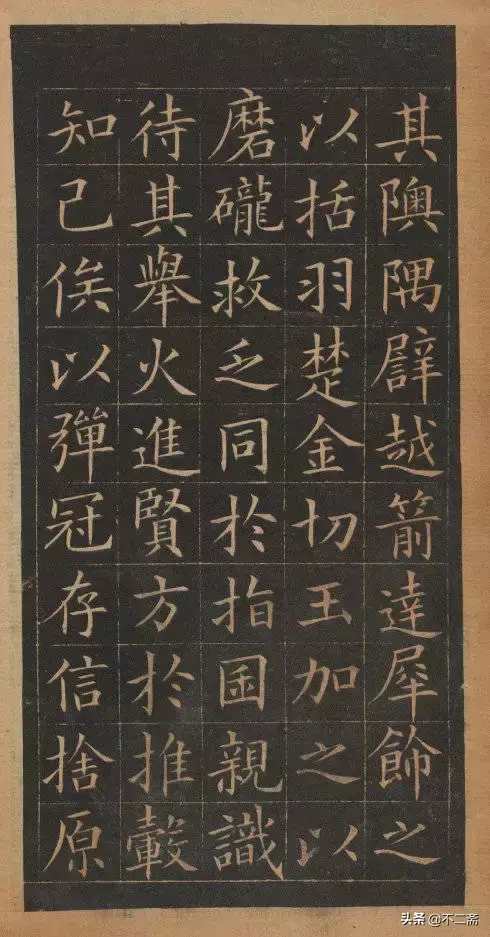 其隩隅譬越箭達犀飾之
以括羽楚金切玉加之以
磨礲救乏同於指囷親識
待其舉火進賢方於推轂
知己俟以彈冠存信捨原
头条 @不二斋